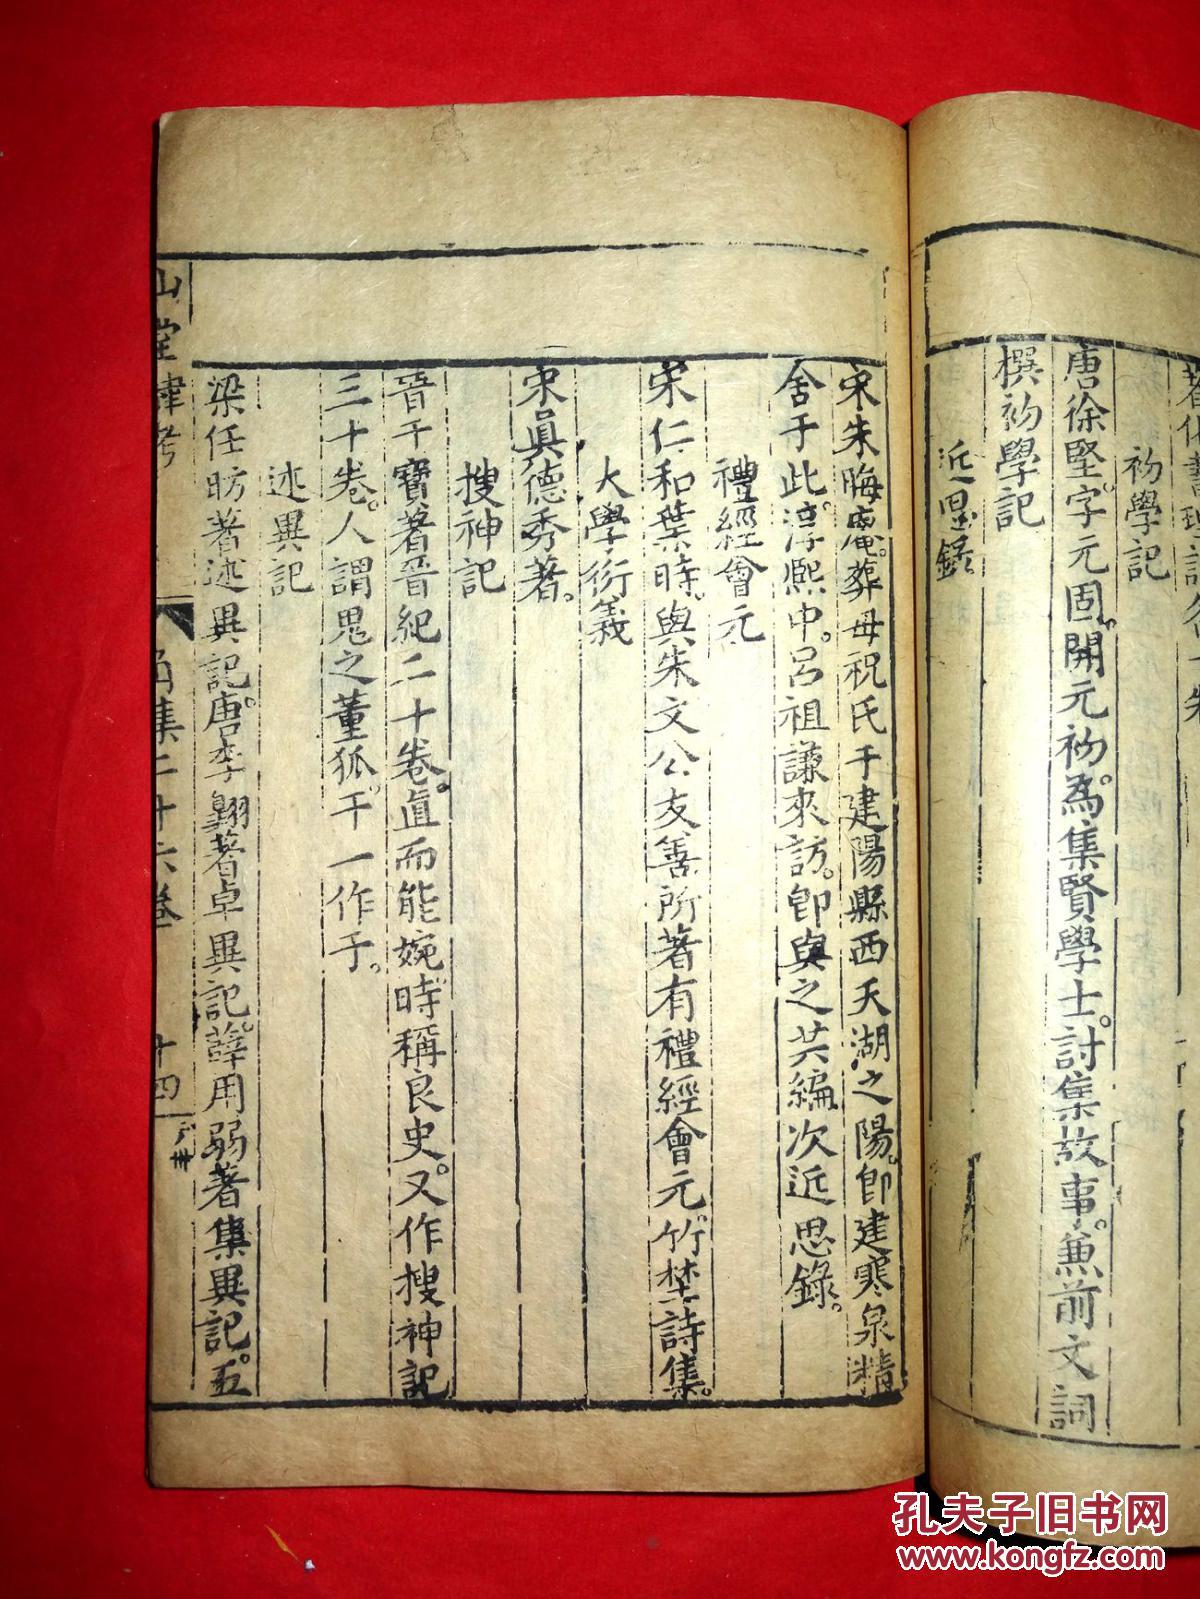 初學記
唐徐堅。字元固。開元初。為集賢學士。討集故事。兼前文詞
撰初學記
近思錄。
宋朱晦庵。葬母祝氏于建陽縣西天湖之陽。即建寒泉精
舍于此。淳熙中。呂祖謙來訪。即與之共編次近思錄。
禮經會元
宋仁和葉時。與朱文公友善。所著有禮經會元。竹埜詩集。
大學衍義
宋眞德秀著。
搜神記
晉干寶著晉紀二十卷。直而能婉。時稱良史。又作搜神記
三十卷。人謂鬼之董狐。干一作于。
述異記
梁任昉著述異記。唐李翱著卓異記。薛用弱著集異記。五
山堂肆考
角集二十六卷
十四
孔夫子旧书网
www.kongfz.com